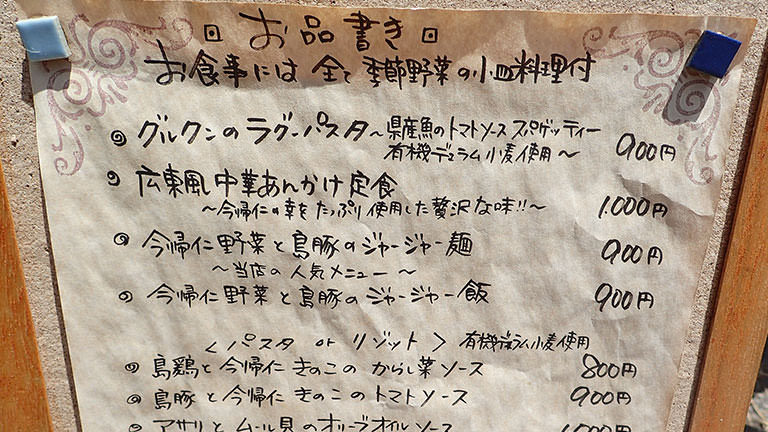 お品書き
お食事には 全て 季節野菜の小皿料理付
グルクンのラグーパスタ～県産魚のトマトソース スパゲッティー 900円
有機デュラム小麦使用～
広東風中華あんかけ定食
～今帰仁の幸をたっぷり使用した贅沢な味!!～ 1.000円
今帰仁野菜と島豚のジャージャー麺 900円
～当店の人気メニュー～
今帰仁野菜と島豚のジャージャー飯 900円
＜パスタ or リゾット＞ 有機デュラム小麦使用
島鶏と今帰仁きのこの からし菜ソース 800円
島豚と今帰仁きのこのトマトソース 900円
アサリとムール貝のオリーブオイルソース 1000円